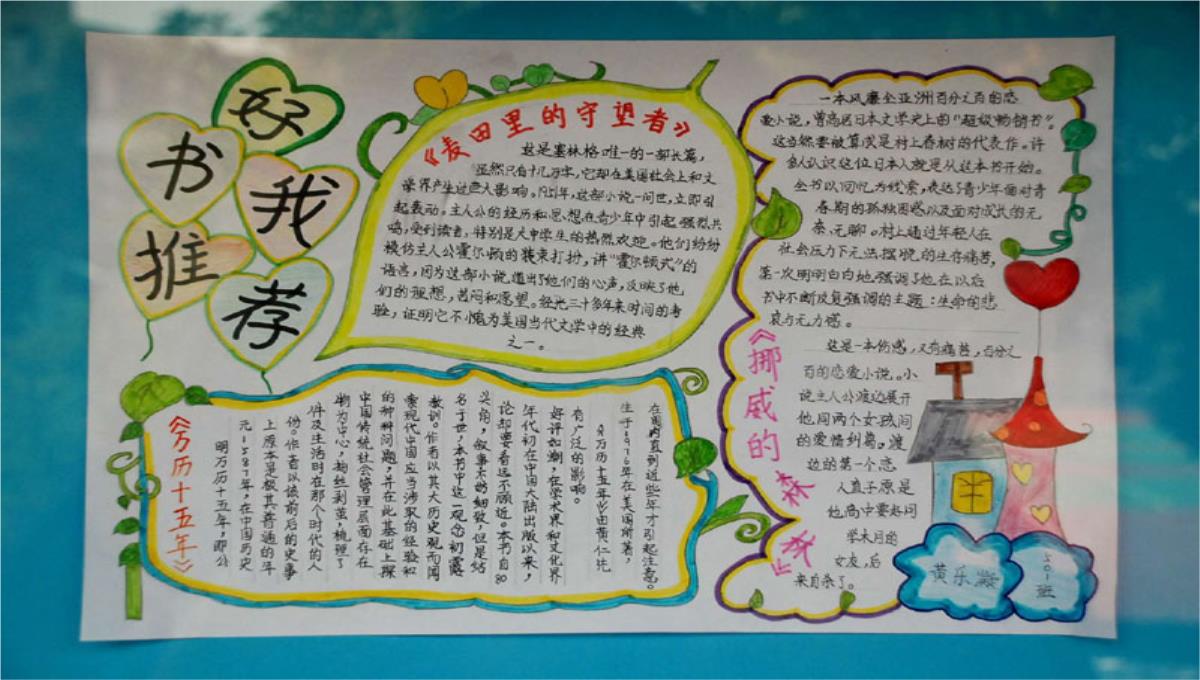 好
书
我
推
荐
《麦田里的守望者》
这是塞林格唯一的一部长篇，
虽然只有十几万字，它却在美国社会上和文
学界产生过巨大影响。1951年，这部小说一问世，立即引
起轰动。主人公的经历和思想在青少年中引起强烈共
鸣，受到读者，特别是大中学生的热烈欢迎。他们纷纷
模仿主人公霍尔顿的装束打扮，讲“霍尔顿式”的
语言，因为这部小说道出了他们的心声，反映了他
们的理想，苦闷和愿望。经光三十多年来时间的考
验，证明它不愧为美国当代文学中的经典
之一。
一本风靡全亚洲百分之百的恋
爱小说，曾高居日本文学史上的“超级畅销书”。
这当然要被算成是村上春树的代表作。许
多人认识这位日本人就是从这本书开始。
全书以回忆为线索，表达了青少年面对青
春期的孤独困惑以及面对成长的无
奈、无聊。村上通过年轻人在
社会压力下无法摆脱的生存痛苦，
第一次明明白白地强调了他在以后
书中不断反复强调的主题：生命的悲
哀与无力感。
这是一本伤感，又有痛苦，百分之
百的恋爱小说。小
说主人公渡边展开
他同两个女孩间
的爱情纠葛，渡
边的第一个恋
人直子原是
他高中要好同
学木月的
女友，后
来自杀了。
《挪威的森林》
《万历十五年》
在国内直到近些年才引起注意。
生于1976年在美国所著，
《万历十五年》由黄仁
有广泛的影响。
好评如潮，在学术界和文化界
年代初在中国大陆出版以来，
论却要看远不顾近。本书自80
尖角，叙事米纳细致，但是结
名于世，本书中这一观念初露
教训。作者以其大历史观而闻
索现代中国应当涉取的经验和
的种种问题，并在此基础上探
中国传统社会管理层面存在
物为中心，抽丝剥茧，梳理了
件及生活时在那个时代的人
份。作者以该前后的史事
上原本是极其普通的年
元1587年，在中国历史
明万历十五年，即公
黄乐
501
班